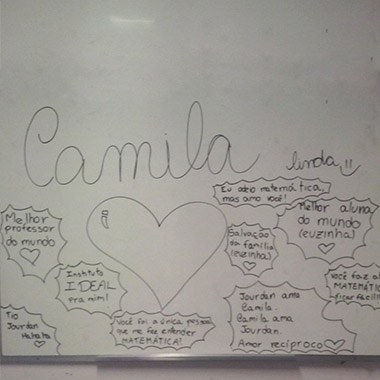 Camila
linda!!
Eu odeio matemática,
mas amo você!
Melhor
professor
do mundo
Melhor aluna
do mundo
(euzinha)
Salvação
da família
(euzinha)
Instituto
IDEAL
pra mim!
Você faz a
MATEMÁTIC
ficar fácil!
Jourdan ama
Camila
Camila ama
Jourdan.
Amor recíproco
Você foi a única pessoa
que me fez entender
MATEMÁTICA!
Tio
Jourdan
Hahaha